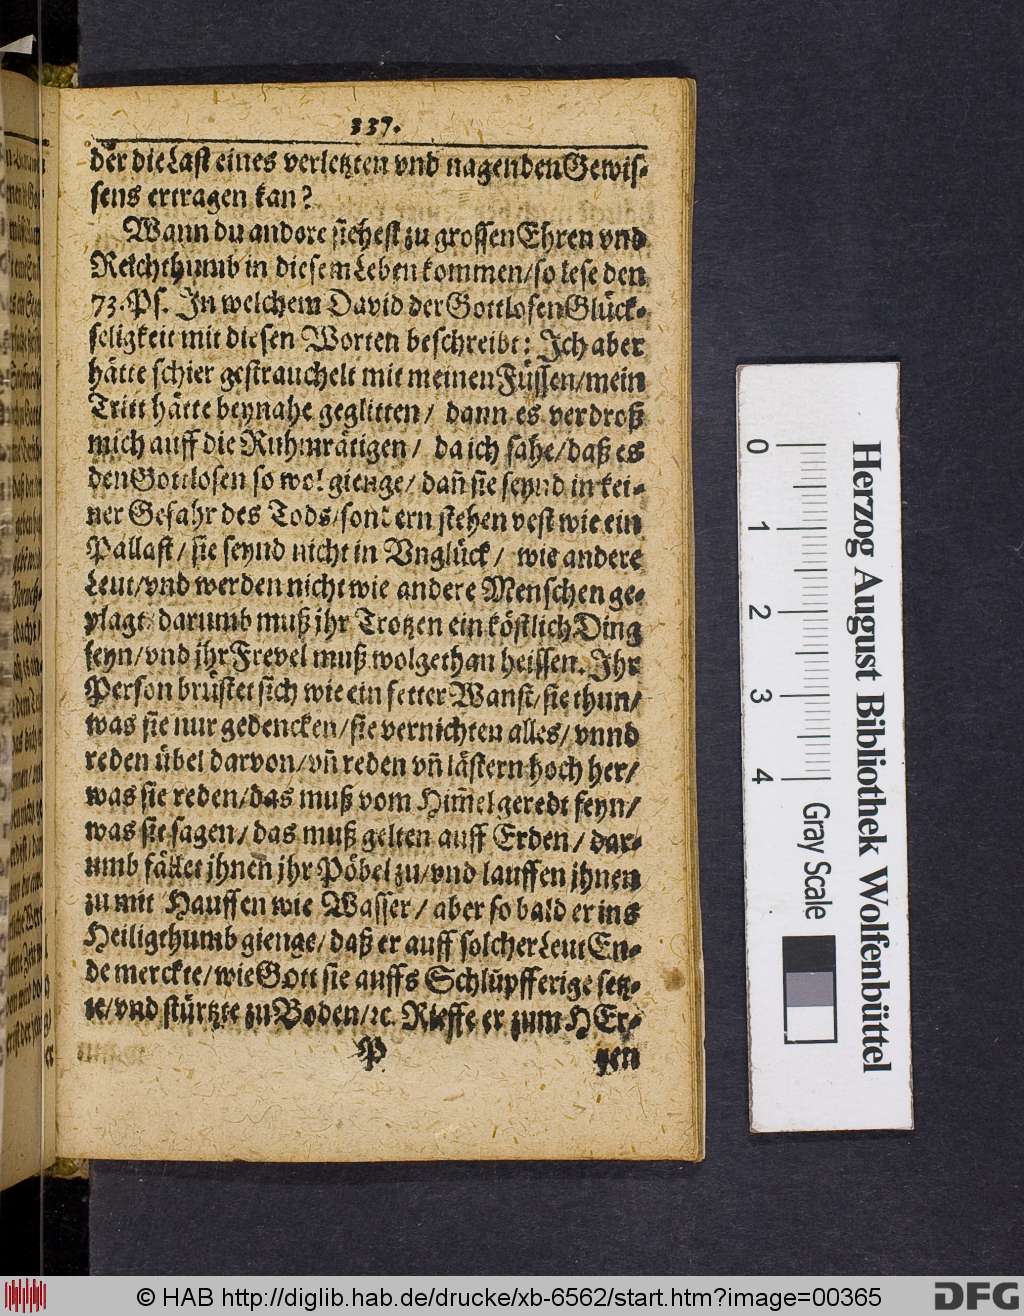 337.
der die Last eines verletzten vnd nagenden Gewis-
sens ertragen kan?
Wann du andere siehest zu grossen Ehren vnd
Reichthumb in diesem Leben kommen/so lese den
73. Ps. In welchem David der Gottlosen Glück-
seligkeit mit diesen Worten beschreibt: Ich aber
hätte schier gestrauchelt mit meinen Füssen/mein
Tritt hätte beynahe geglitten/ dann es verdroß
mich auff die Ruhmrätigen/ da ich sahe/daß es
den Gottlosen so wol gienge/dañ sie seynd in kei-
ner Gefahr des Tods/sondern stehen vest wie ein
Pallast/sie seynd nicht in Vnglück/ wie andere
Leut/vnd werden nicht wie andere Menschen ge-
plagt: darumb muß jhr Trotzen ein köstlich Ding
seyn/vnd jhr Frevel muß wolgethan heissen. Ihr
Person brüstet sich wie ein fetter Wanst/sie thun/
was sie nur gedencken/sie vernichten alles/vnnd
reden übel darvon/vñ reden vñ lästern hoch her/
was sie reden/das muß vom Him̃el geredt seyn/
was sie sagen/das muß gelten auff Erden/dar-
umb fället jhnen jhr Pöbel zu/vnd lauffen jhnen
zu mit Hauffen wie Wasser/aber so bald er ins
Heiligthumb gienge/daß er auff solcher Leut En-
de merckte/wie Gott sie auffs Schlüpfferige setz-
te/vnd stürtzte zu Boden/ꝛc. Rieffe er zum HEr-
P
ren
Herzog August Bibliothek Wolfenbüttel
0 1 2 3 4
Gray Scale
© HAB http://diglib.hab.de/drucke/xb-6562/start.htm?image=00365
DFG